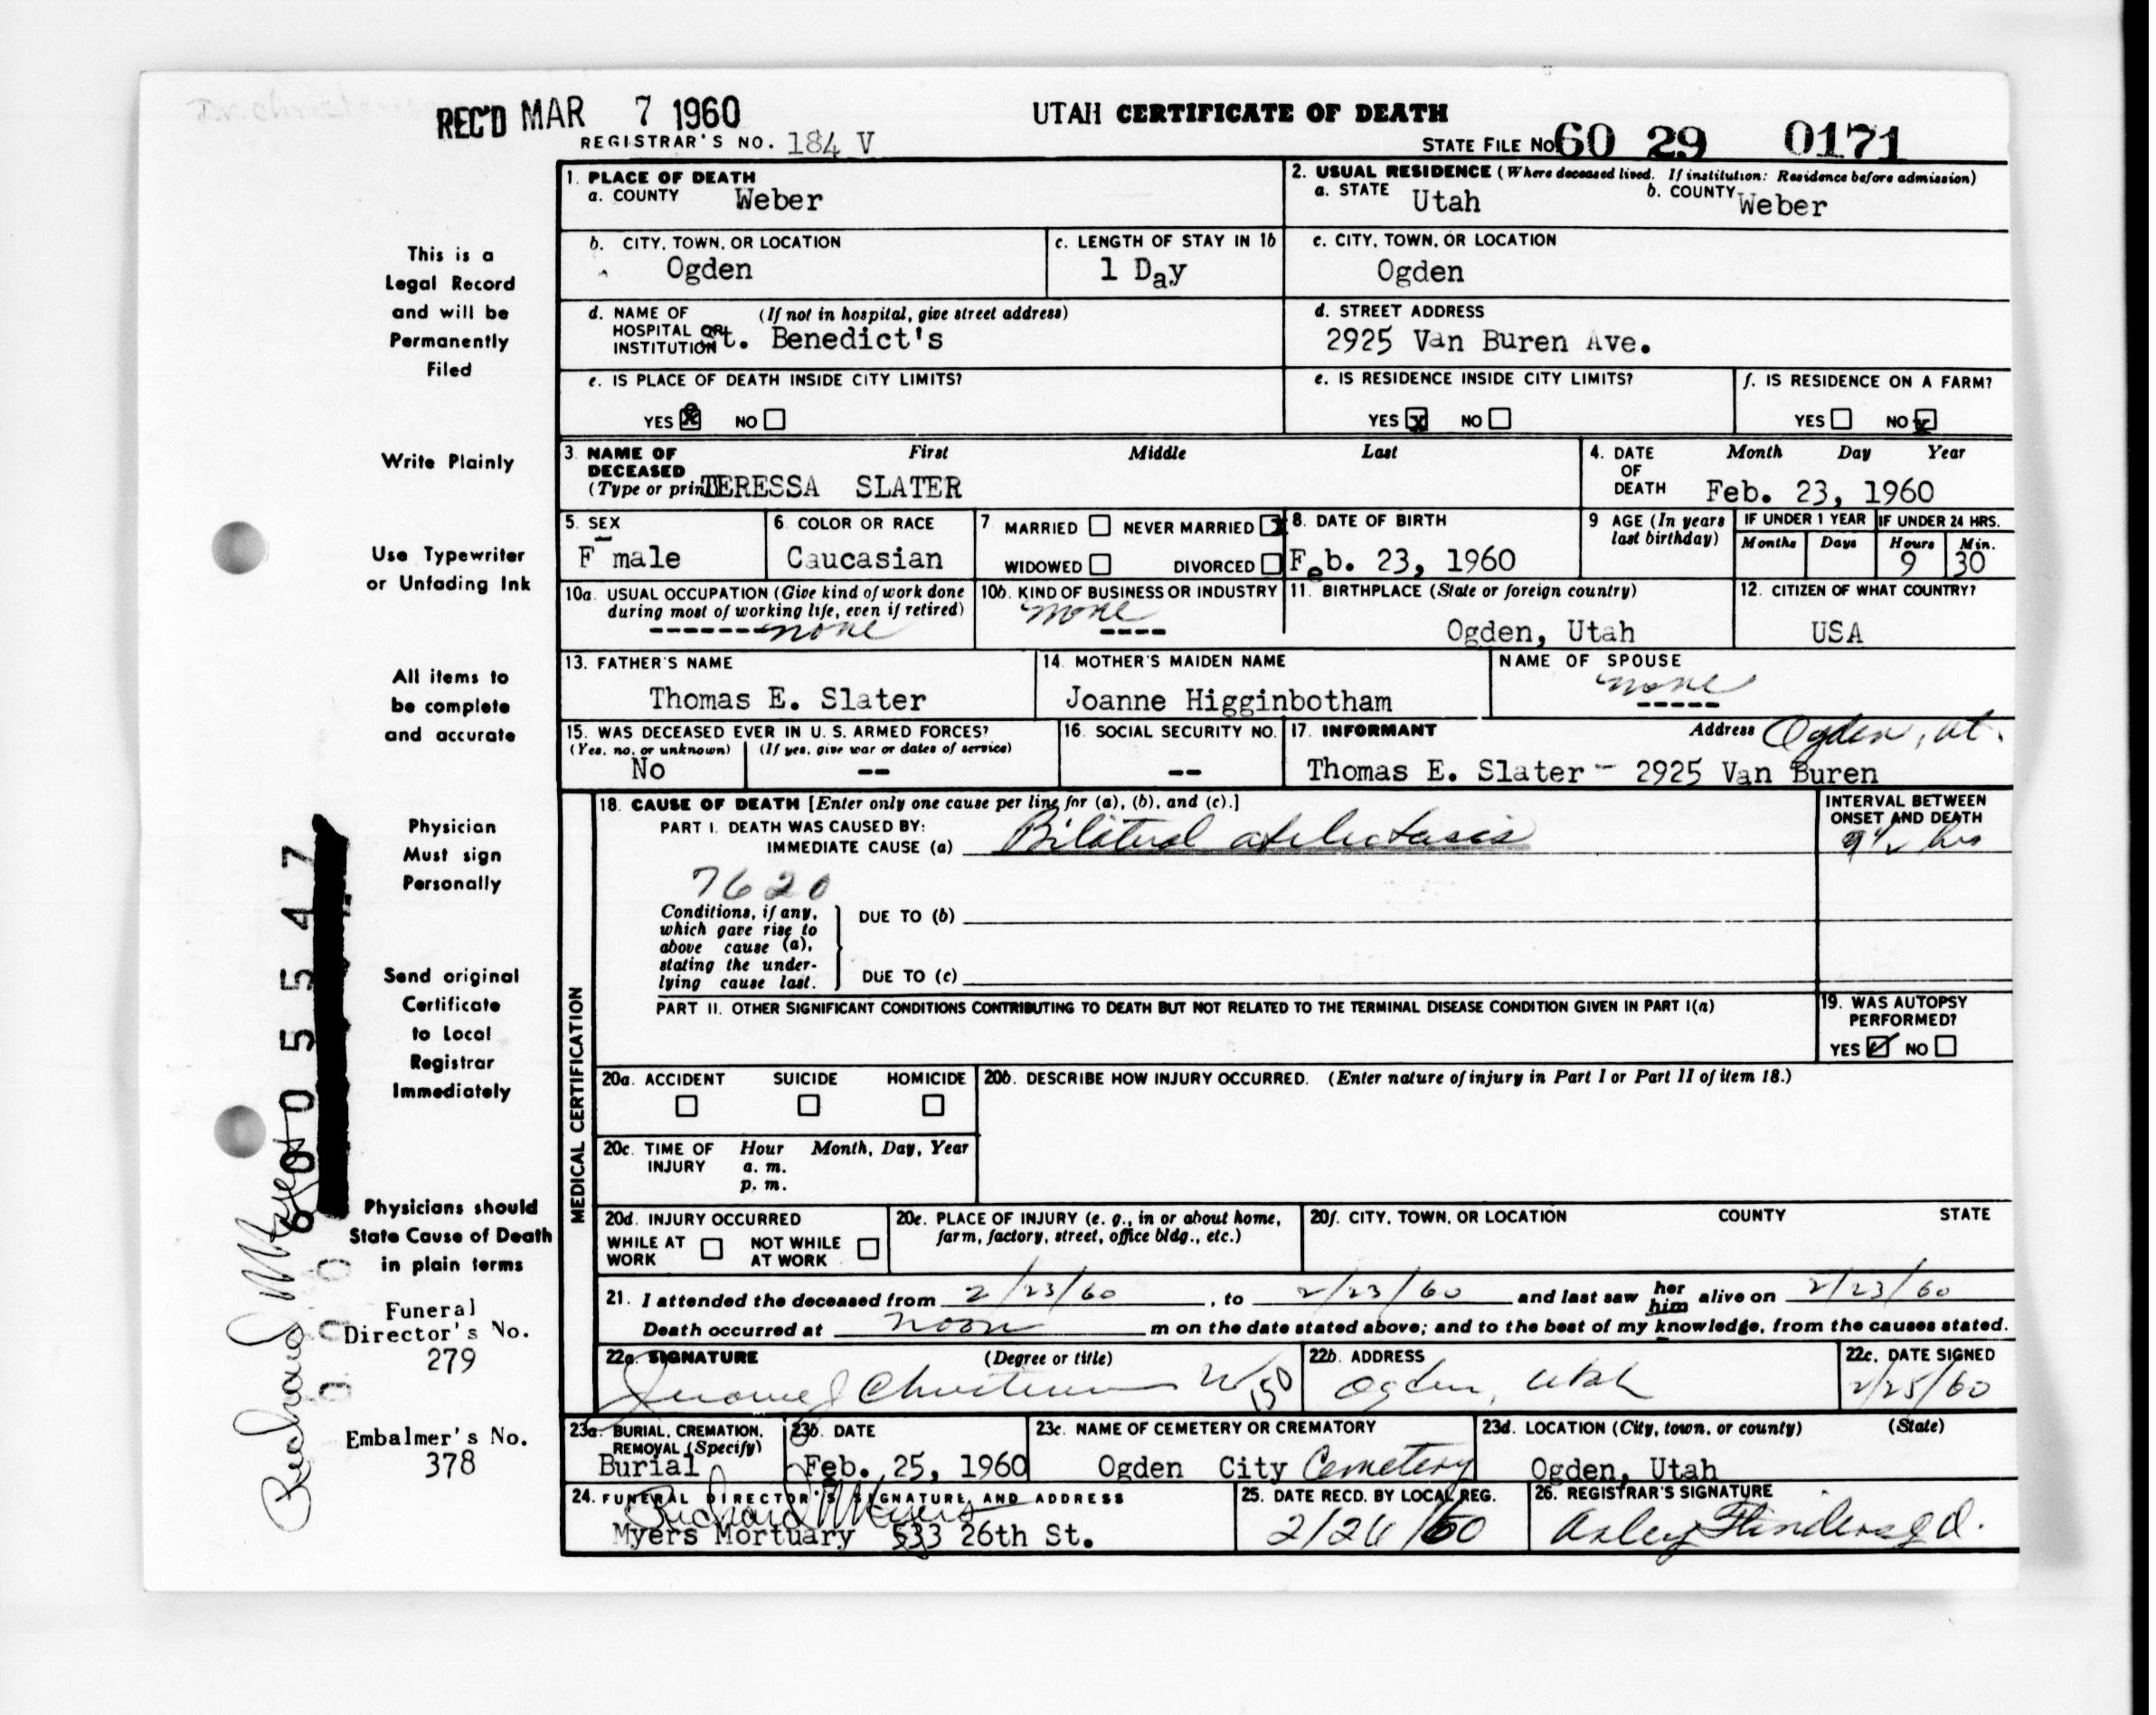 REC'D MAR 7 1960
UTAH CERTIFICATE OF DEATH
REGISTRAR'S NO. 184 V
STATE FILE No 60 29 0171
This is a
Legal Record
and will be
Permanently
Filed
Write Plainly
Use Typewriter
or Unfading Ink
All items to
be complete
and accurate
Physician
Must sign
Personally
Send original
Certificate
to Local
Registrar
Immediately
Physicians should
State Cause of Death
in plain terms
Funeral
Director's No.
279
Embalmer's No.
378
Richard Myers
1. PLACE OF DEATH
a. COUNTY Weber
2. USUAL RESIDENCE (Where deceased lived. If institution: Residence before admission)
a. STATE Utah b. COUNTY Weber
b. CITY, TOWN, OR LOCATION
Ogden
c. LENGTH OF STAY IN 1b
1 Day
c. CITY, TOWN, OR LOCATION
Ogden
d. NAME OF (If not in hospital, give street address)
HOSPITAL OR
INSTITUTION St. Benedict's
d. STREET ADDRESS
2925 Van Buren Ave.
e. IS PLACE OF DEATH INSIDE CITY LIMITS?
YES X NO
e. IS RESIDENCE INSIDE CITY LIMITS?
YES X NO
f. IS RESIDENCE ON A FARM?
YES NO X
3. NAME OF First Middle Last
DECEASED
(Type or print) TERESSA SLATER
4. DATE Month Day Year
OF
DEATH Feb. 23, 1960
5. SEX
F male
6. COLOR OR RACE
Caucasian
7 MARRIED NEVER MARRIED X
WIDOWED DIVORCED
8. DATE OF BIRTH
Feb. 23, 1960
9 AGE (In years
last birthday)
IF UNDER 1 YEAR IF UNDER 24 HRS.
Months Days Hours Min.
9 30
10a. USUAL OCCUPATION (Give kind of work done
during most of working life, even if retired)
------- none
10b. KIND OF BUSINESS OR INDUSTRY
none
----
11. BIRTHPLACE (State or foreign country)
Ogden, Utah
12. CITIZEN OF WHAT COUNTRY?
USA
13. FATHER'S NAME
Thomas E. Slater
14. MOTHER'S MAIDEN NAME
Joanne Higginbotham
NAME OF SPOUSE
none
-----
15. WAS DECEASED EVER IN U. S. ARMED FORCES?
(Yes, no, or unknown) (If yes, give war or dates of service)
No --
16. SOCIAL SECURITY NO.
--
17. INFORMANT Address Ogden, Ut.
Thomas E. Slater - 2925 Van Buren
MEDICAL CERTIFICATION
18. CAUSE OF DEATH [Enter only one cause per line for (a), (b), and (c).]
PART I. DEATH WAS CAUSED BY:
IMMEDIATE CAUSE (a) Bilateral atelectasis
INTERVAL BETWEEN
ONSET AND DEATH
9½ hrs
7620
Conditions, if any,
which gave rise to
above cause (a),
stating the under-
lying cause last.
DUE TO (b)
DUE TO (c)
PART II. OTHER SIGNIFICANT CONDITIONS CONTRIBUTING TO DEATH BUT NOT RELATED TO THE TERMINAL DISEASE CONDITION GIVEN IN PART I(a)
19. WAS AUTOPSY
PERFORMED?
YES ✓ NO
20a. ACCIDENT SUICIDE HOMICIDE
20b. DESCRIBE HOW INJURY OCCURRED. (Enter nature of injury in Part I or Part II of item 18.)
20c. TIME OF Hour Month, Day, Year
INJURY a. m.
p. m.
20d. INJURY OCCURRED
WHILE AT NOT WHILE
WORK AT WORK
20e. PLACE OF INJURY (e. g., in or about home,
farm, factory, street, office bldg., etc.)
20f. CITY, TOWN, OR LOCATION COUNTY STATE
21. I attended the deceased from 2/23/60, to 2/23/60 and last saw her him alive on 2/23/60
Death occurred at noon m on the date stated above; and to the best of my knowledge, from the causes stated.
22a. SIGNATURE (Degree or title)
22b. ADDRESS
Ogden, Utah
22c. DATE SIGNED
2/25/60
23a. BURIAL, CREMATION,
REMOVAL (Specify)
Burial
23b. DATE
Feb. 25, 1960
23c. NAME OF CEMETERY OR CREMATORY
Ogden City Cemetery
23d. LOCATION (City, town, or county) (State)
Ogden, Utah
24. FUNERAL DIRECTOR'S SIGNATURE AND ADDRESS
Richard Myers
Myers Mortuary 533 26th St.
25. DATE RECD. BY LOCAL REG.
2/26/60
26. REGISTRAR'S SIGNATURE